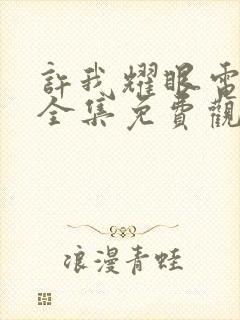 許我耀眼電
全集免費觀
浪漫青蛙